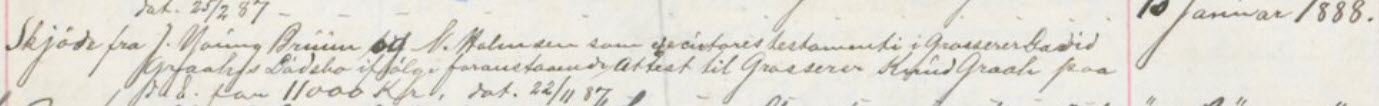 dat. 25/2 87
10 Januar 1888.
Skjöde fra J. Young Bruun og N. Holmsen som executores testamenti i Grosserer David
Graahs Dödsbo ifölge foranstaaende Attest til Grosserer Knud Graah paa
d. E. for 11000 Kr, dat. 22/11 87